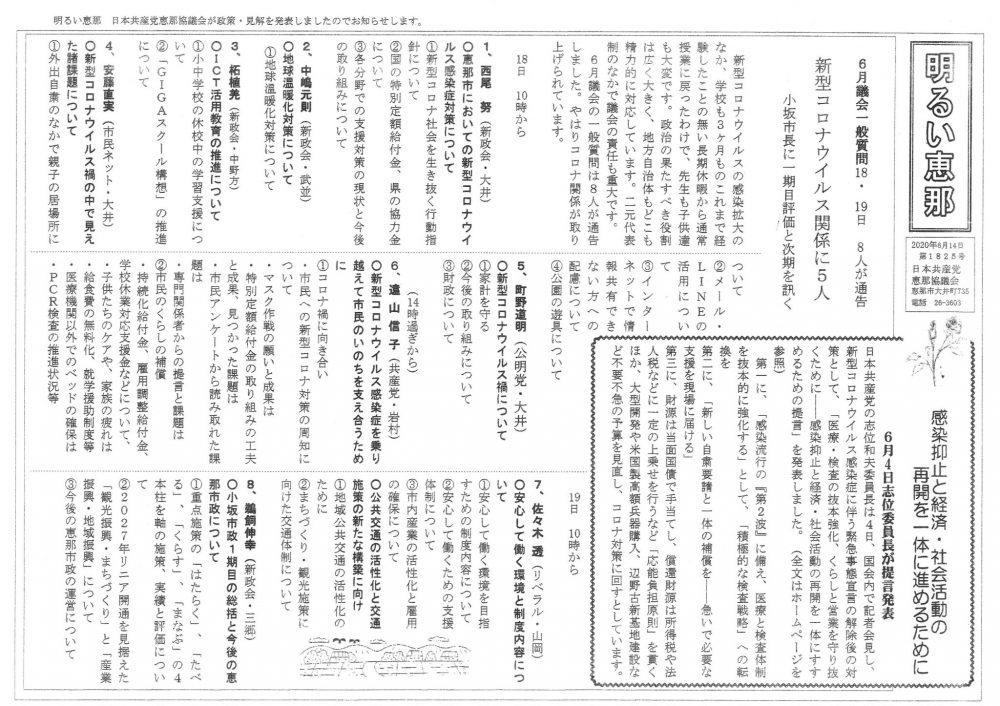 明るい恵那　日本共産党恵那協議会が政策・見解を発表しましたのでお知らせします。
明るい恵那
2020年6月14日
第1825号
日本共産党
恵那協議会
恵那市大井町735
電話 26-3603
6月議会一般質問18・19日　8人が通告
新型コロナウイルス関係に5人
小坂市長に一期目評価と次期を訊く
新型コロナウイルスの感染拡大の
なか、学校も3ヶ月ものこれまで経
験したことの無い長期休暇から通常
授業に戻ったわけで、先生も子供達
も大変です。政治の果たすべき役割
は広く大きく、地方自治体もどこも
精力的に対応しています。二元代表
制のなかで議会の責任も重大です。
6月議会の一般質問は8人が通告
しました。やはりコロナ関係が取り
上げられています。
18日　10時から
1、西尾　努（新政会・大井）
〇恵那市においての新型コロナウイ
ルス感染症対策について
①新型コロナ社会を生き抜く行動指
針について
②国の特別定額給付金、県の協力金
について
③各分野での支援対策の現状と今後
の取り組みについて
2、中嶋元則（新政会・武並）
〇地球温暖化対策について
①地球温暖化対策について
3、柘植羌（新政会・中野方）
〇ICT活用教育の推進について
①小中学校の休校中の学習支援につ
いて
②「GIGAスクール構想」の推進
について
4、安藤直実（市民ネット・大井）
〇新型コロナウイルス禍の中で見え
た諸課題について
①外出自粛のなかで親子の居場所に
ついて
②メール・
LINEの
活用につい
て
③インター
ネットで情
報共有でき
ない方への
配慮について
④公園の遊具について
5、町野道明（公明党・大井）
〇新型コロナウイルス禍について
①家計を守る
②今後の取り組みについて
③財政について
（14時過ぎから）
6、遠山信子（共産党・岩村）
〇新型コロナウイルス感染症を乗り
越えて市民のいのちを支え合うため
に
①コロナ禍に向き合い
・市民への新型コロナ対策の周知に
ついて
・マスク作戦の願いと成果は
・特別定額給付金の取り組みの工夫
と成果、見つかった課題は
・市民アンケートから読み取れた課
題は
・専門関係者からの提言と課題は
②市民のくらしの補償
・持続化給付金、雇用調整給付金、
学校休業対応支援金などについて、
・子供たちのケアや、家族の疲れは
・給食費の無料化、就学援助制度等
・医療機関以外でのベッドの確保は
・PCR検査の推進状況等
感染抑止と経済・社会活動の
再開を一体に進めるために
6月4日志位委員長が提言発表
日本共産党の志位和夫委員長は4日、国会内で記者会見し、
新型コロナウイルス感染症に伴う緊急事態宣言の解除後の対
策として、「医療・検査の抜本強化、くらしと営業を守り抜
くために――感染抑止と経済・社会活動の再開を一体にすす
めるための提言」を発表しました。（全文はホームページを
参照）
第一に、「感染流行の『第2波』に備え、医療と検査体制
を抜本的に強化する」として、「積極的な検査戦略」への転
換を
第二に、「新しい自粛要請と一体の補償を――急いで必要な
支援を現場に届ける」
第三に、財源は当面国債で手当てし、償還財源は所得税や法
人税などに一定の上乗せを行うなど「応能負担原則」を貫く
ほか、大型開発や米国製高額兵器購入、辺野古新基地建設な
ど不要不急の予算を見直し、コロナ対策に回すとしています。
19日　10時から
7、佐々木　透（リベラル・山岡）
〇安心して働く環境と制度内容につ
いて
①安心して働く環境を目指
すための制度内容について
②安心して働くための支援
体制について
③市内産業の活性化と雇用
の確保について
〇公共交通の活性化と交通
施策の新たな構築に向け
①地域公共交通の活性化の
ために
②まちづくり・観光施策に
向けた交通体制について
8、鵜飼伸幸（新政会・三郷）
〇小坂市政1期目の総括と今後の恵
那市政について
①重点施策の「はたらく」、「たべ
る」、「くらす」、「まなぶ」の4
本柱を軸の施策、実績と評価につい
て
②2027年リニア開通を見据えた
「観光振興・まちづくり」と「産業
振興・地域振興」について
③今後の恵那市政の運営について